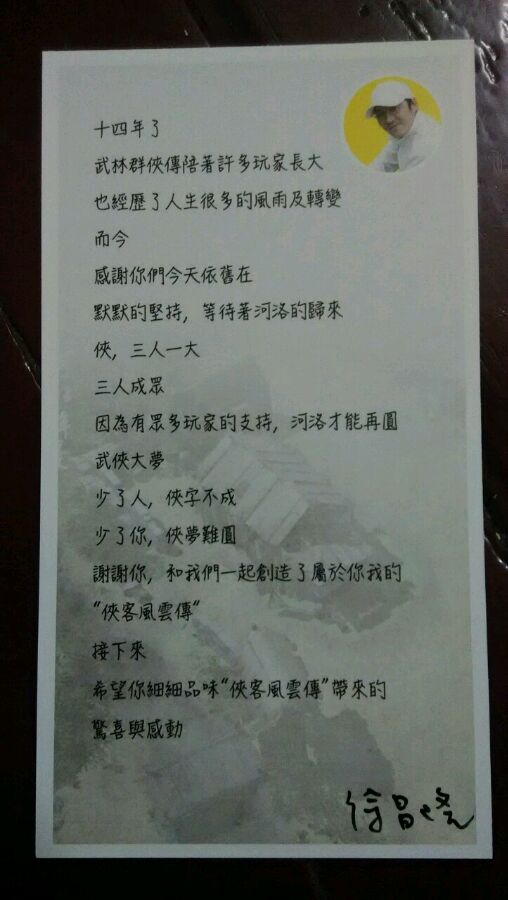 十四年了
武林群俠傳陪著許多玩家長大
也經歷了人生很多的風雨及轉變
而今
感謝你們今天依舊在
默默的堅持，等待著河洛的歸來
俠，三人一大
三人成眾
因為有眾多玩家的支持，河洛才能再圓
武俠大夢
少了人，俠字不成
少了你，俠夢難圓
謝謝你，和我們一起創造了屬於你我的
“俠客風雲傳“
接下來
希望你細細品味“俠客風雲傳”帶來的
驚喜與感動
徐昌隆